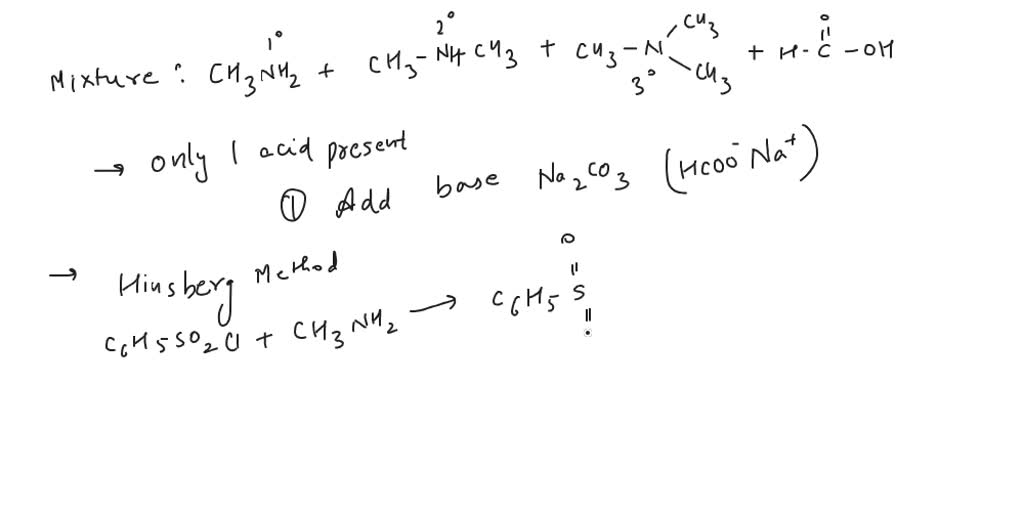 1° 2° O
Mixture : CH3NH2 + CH3-NHCH3 + CH3-N CH3 CH3 3° + H-C-OH
→ only 1 acid present
① Add base Na2CO3 (HCOO⁻Na⁺)
→ Hinsberg Method
C6H5SO2Cl + CH3NH2 → C6H5 S O